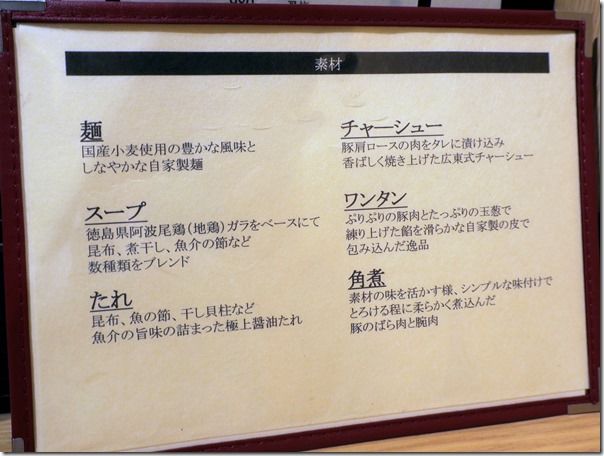 素材
麺
国産小麦使用の豊かな風味と
しなやかな自家製麺
スープ
徳島県阿波尾鶏（地鶏）ガラをベースにて
昆布、煮干し、魚介の節など
数種類をブレンド
たれ
昆布、魚の節、干し貝柱など
魚介の旨味の詰まった極上醤油たれ
チャーシュー
豚肩ロースの肉をタレに漬け込み
香ばしく焼き上げた広東式チャーシュー
ワンタン
ぷりぷりの豚肉とたっぷりの玉葱で
練り上げた餡を滑らかな自家製の皮で
包み込んだ逸品
角煮
素材の味を活かす様、シンプルな味付けで
とろける程に柔らかく煮込んだ
豚のばら肉と腕肉